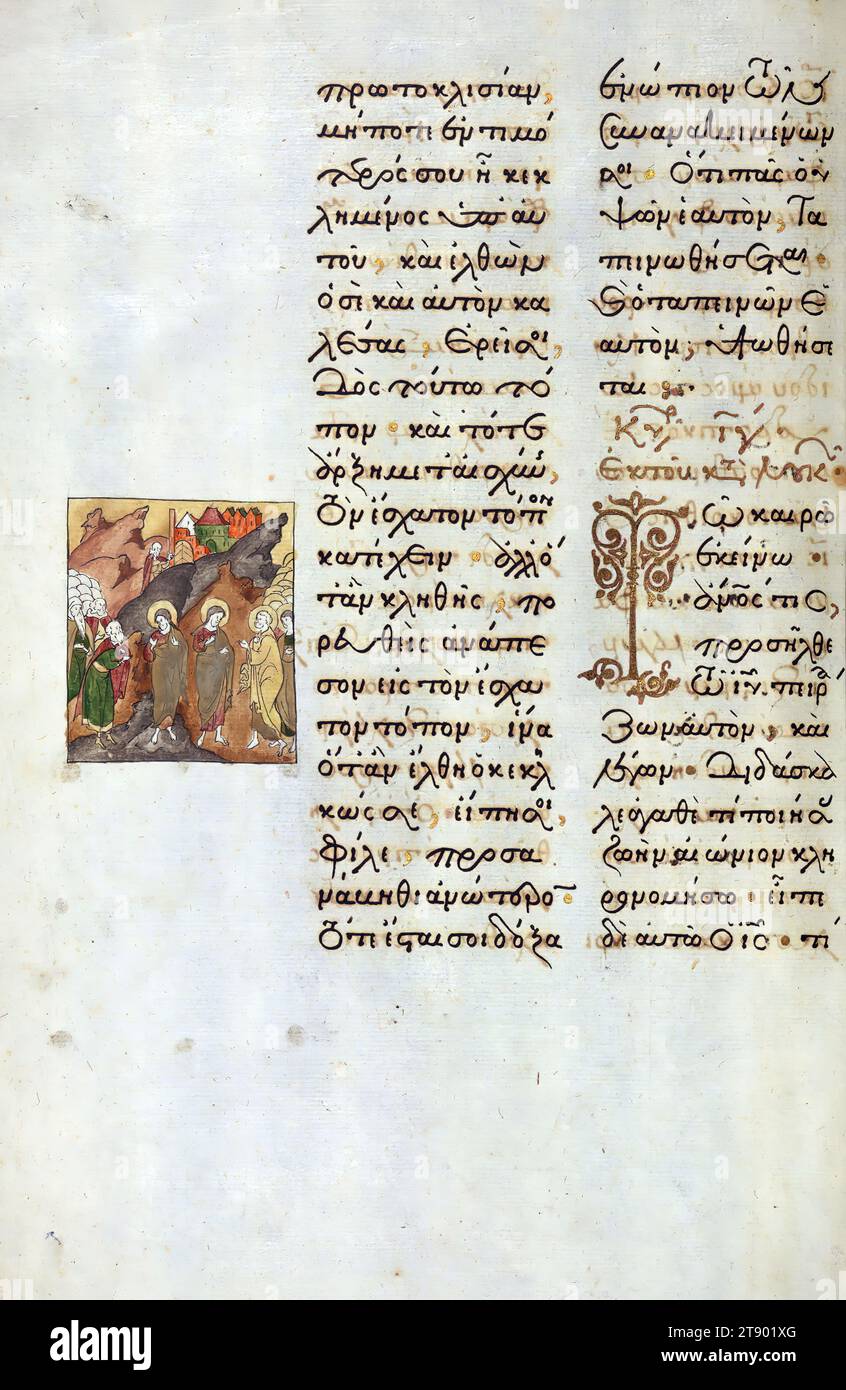 πρωτοκλισίαν,
μήποτε ἐντιμό
τερός σου ᾖ κεκ
λημένος ὑπ' αυ
τοῦ, καὶ ἐλθὼν
ὁ σὲ καὶ αὐτὸν κα
λέσας, ἐρεῖ σοι,
Δὸς τούτω τό
πον · καὶ τότε
ἄρξη μετ' αἰσχύν
Τὸν ἔσχατον τόπον
κατέχειν · ἀλλ' ὅ
τὰν κληθῆς, πο
ρευθεὶς ἀνάπε
σον εἰς τὸν ἔσχα
τον τόπον, ἵνα
ὅτὰν ἔλθη ὁ κεκλ
κώς σε, εἴπη σοι,
φίλε, προσα
νάβηθι ἀνώτερον ·
Τότε ἔσται σοι δόξα
ἐνώπιον τῶν
συνανακειμένων
σοι · Ὅτι πᾶς ὁ ὑ
ψῶν ἑαυτὸν, Τα
πεινωθήσεται ·
καὶ ὁ ταπεινῶν ἑ
αυτὸν, ὑψωθήσε
ται ·
Κυ ιγ
Ἐκ τοῦ κατ Λουκ
Τῶ καιρῶ
ἐκείνω ·
ἄνος τίς,
προσῆλθε
τῶ ἰῦ πειρά
ζων αὐτὸν, καὶ
λέγων · Διδάσκα
λε ἀγαθὲ τί ποιήσας
ζωὴν αἰώνιον κλη
ρονομήσω · εἶπε
δὲ αὐτῶ ὁ ἰς · τί
alamy
Image ID: 2T901XG
www.alamy.com